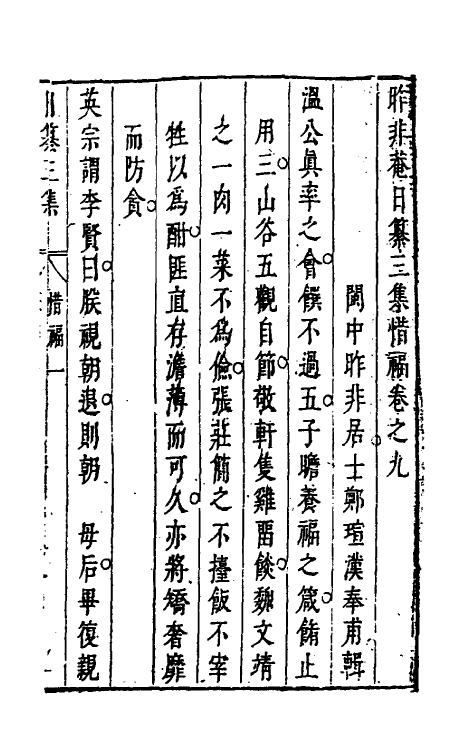 昨非菴日纂三集惜福卷之九
閩中昨非居士鄭瑄漢奉甫輯
溫公眞率之會饌不過五子瞻養福之箴餚止
用三山谷五觀自節敬軒隻雞畱餤魏文靖
之一肉一菜不爲儉張莊簡之不擡飯不宰
牲以爲酣匪直存澹薄而可久亦將矯奢靡
而防貪
英宗謂李賢曰朕視朝退則朝 母后畢復親
日纂三集
惜福
一